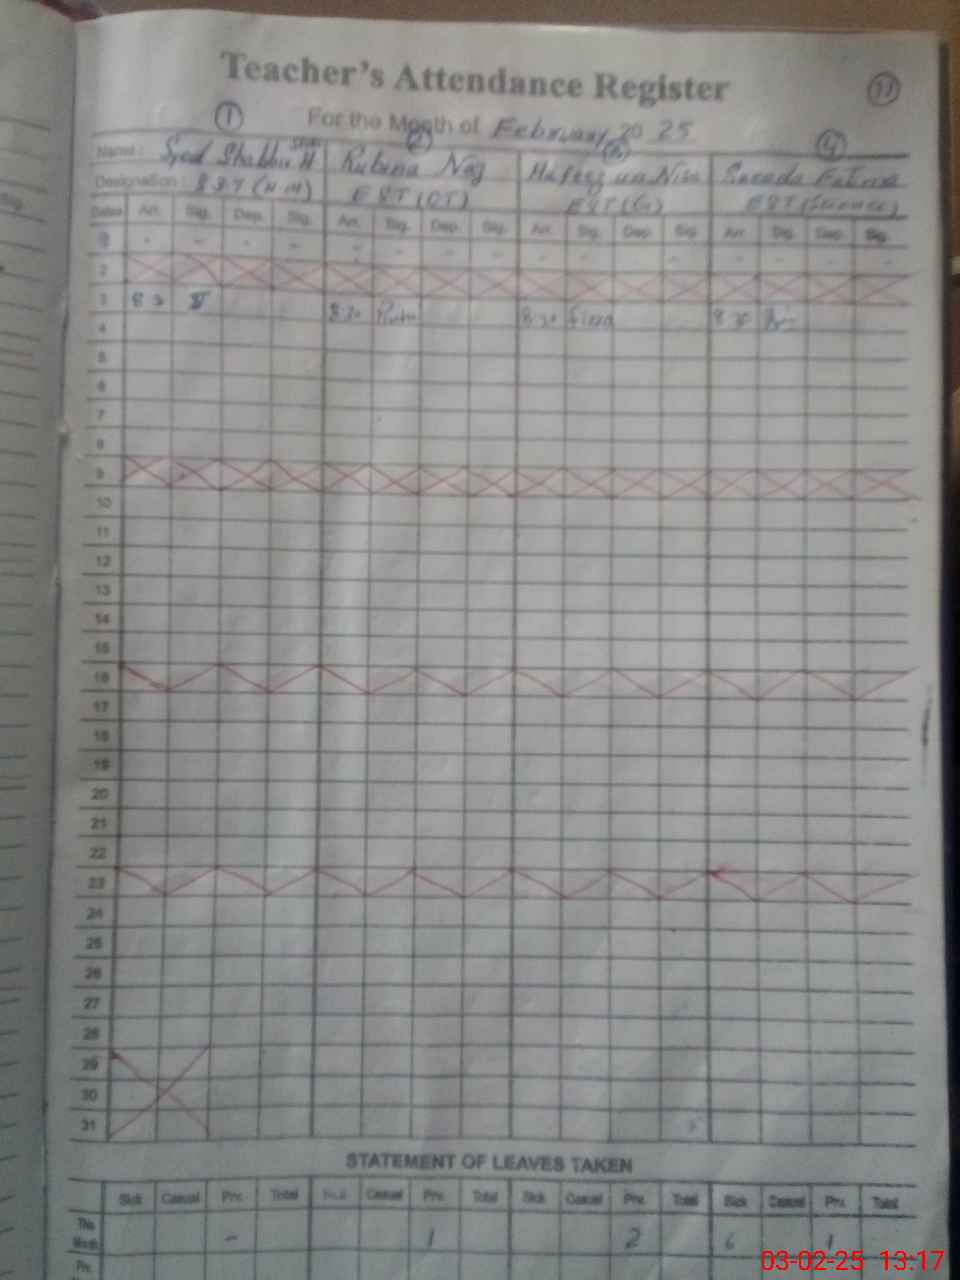 Teacher's Attendance Register
11
For the Month of February 2025
1 2 4
Name: Syed Shabbir H Shah Rubina Naz Hafeez un Nisa Saeeda Fatima
Designation: EST (CT) EST (Science)
Dates Arr. Sig. Dep. Sig. Arr. Sig. Dep. Sig. Arr. Sig. Dep. Sig. Arr. Sig. Dep. Sig.
- - - - - - - - - - - -
2
3 8 30 8:30 8 30 Fizza 8 30
4
5
6
7
8
9
10
11
12
13
14
15
16
17
18
19
20
21
22
23
24
25
26
27
28
29
30
31
STATEMENT OF LEAVES TAKEN
Sick Casual Prv. Total Sick Casual Prv. Total Sick Casual Prv. Total Sick Casual Prv. Total
This Month - 1 2 6 1
Prv.
03-02-25 13:17